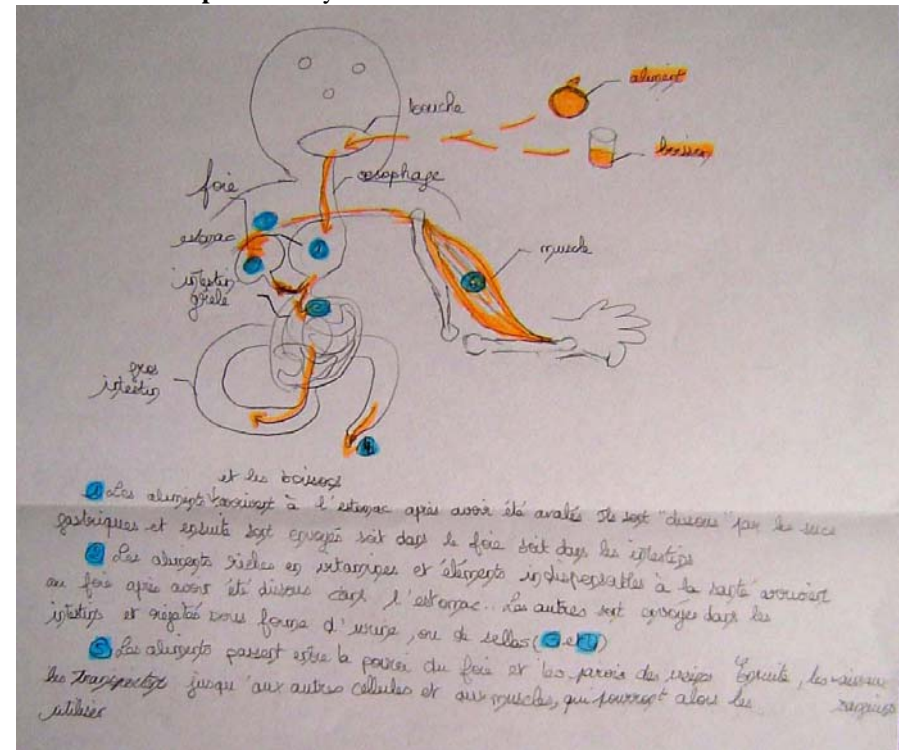 aliment
bouche
boisson
foie
œsophage
estomac
muscle
intestin
grêle
gros
intestin
et les boissons
1 Les aliments arrivent à l'estomac après avoir été avalés Ils sont "dissous" par les sucs
gastriques et ensuite sont envoyés soit dans le foie soit dans les intestins
2 Les aliments riches en vitamines et éléments indispensables à la santé arrivent
au foie après avoir été dissous dans l'estomac.. Les autres sont envoyés dans les
intestins et rejetés sous forme d'urine, ou de selles (3 et 4)
5 Les aliments passent entre la paroi du foie et les parois des Ensuite, les
les jusqu'aux autres cellules et aux muscles, qui pourront alors les
utiliser